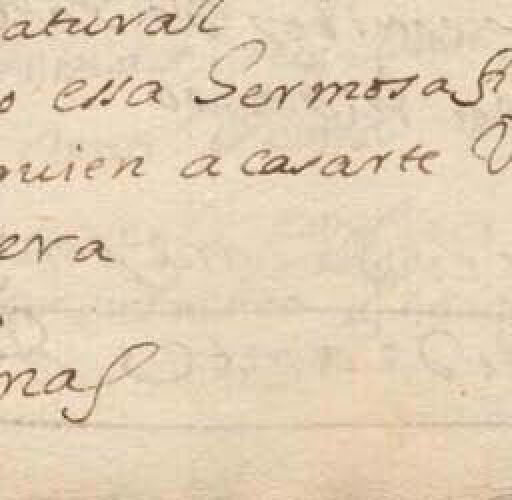 atural
o essa Sermosa fi
nuien a casarte V
era
nas